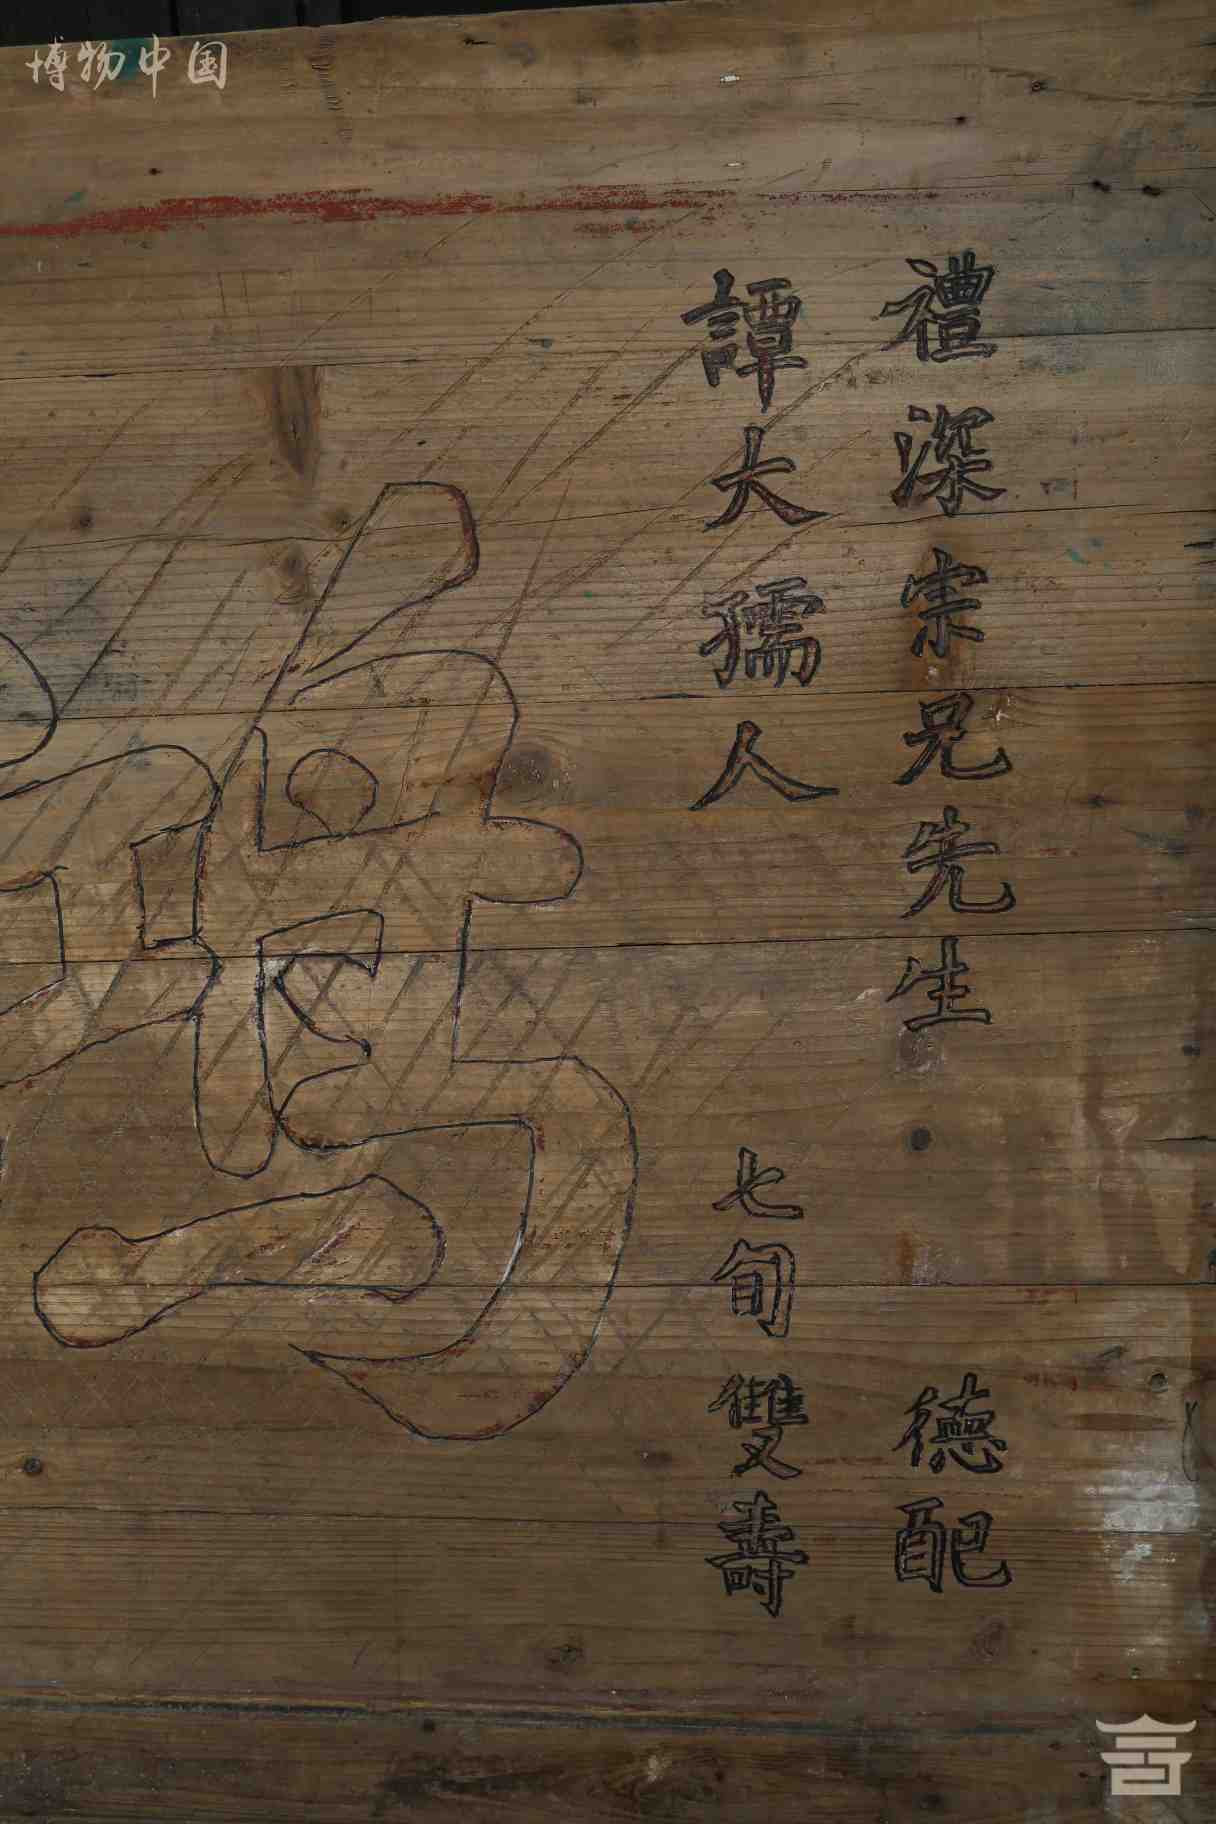 博物中国
禮深宗兄先生 德配
譚大孺人 七旬雙壽